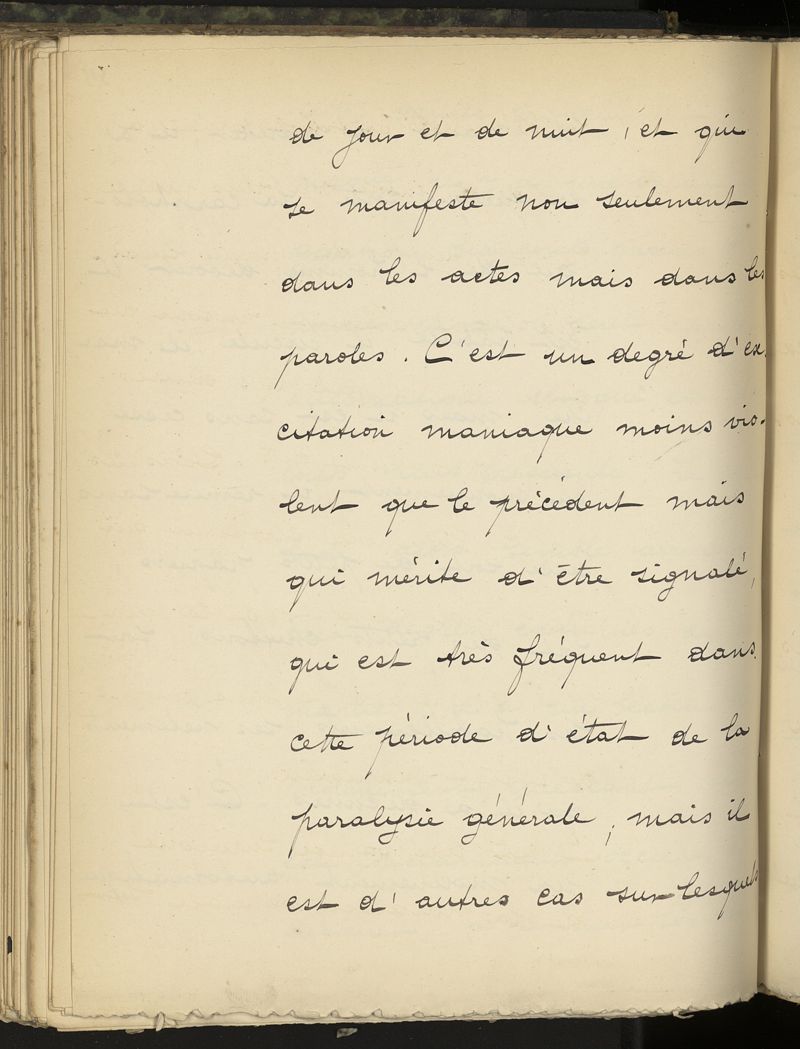 de jour et de nuit, et qui
se manifeste non seulement
dans les actes mais dans les
paroles. C'est un degré d'ex-
citation maniaque moins vio-
lent que le précédent mais
qui mérite d'être signalé,
qui est très fréquent dans
cette période d'état de la
paralysie générale, mais il
est d'autres cas sur lesquels